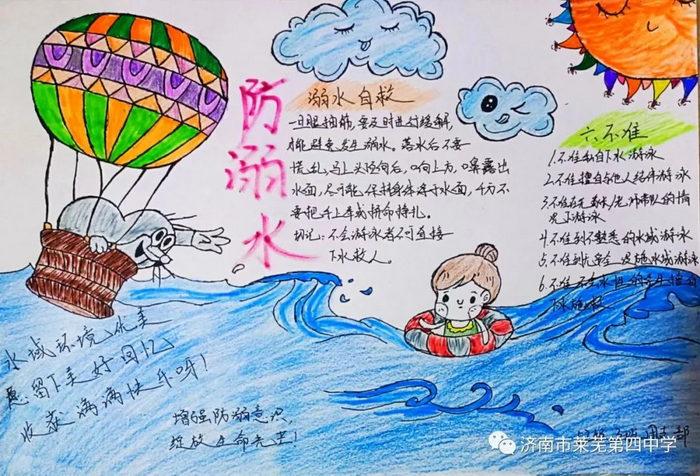 防溺水
溺水自救
一旦腿抽筋，要及时进行缓解，
避免发生溺水。落水后不要
慌乱，马上头应向后，口向上方，口鼻露出
水面，尽可能保持身体浮于水面，千万不
要把手上举或拼命挣扎。
切记：不会游泳者不可直接
下水救人。
六不准
1.不准私自下水游泳
2.不准擅自与他人结伴游泳
3.不准在无家长/老师带队的情
况下游泳
4.不准到不熟悉的水域游泳
5.不准到无安全设施水域游泳
6.不准不会水性的学生擅自
下水施救
水域环境优美
愿留下美好回忆
收获满满快乐呀！
增强防溺意识
绽放生命光芒！
济南市莱芜第四中学